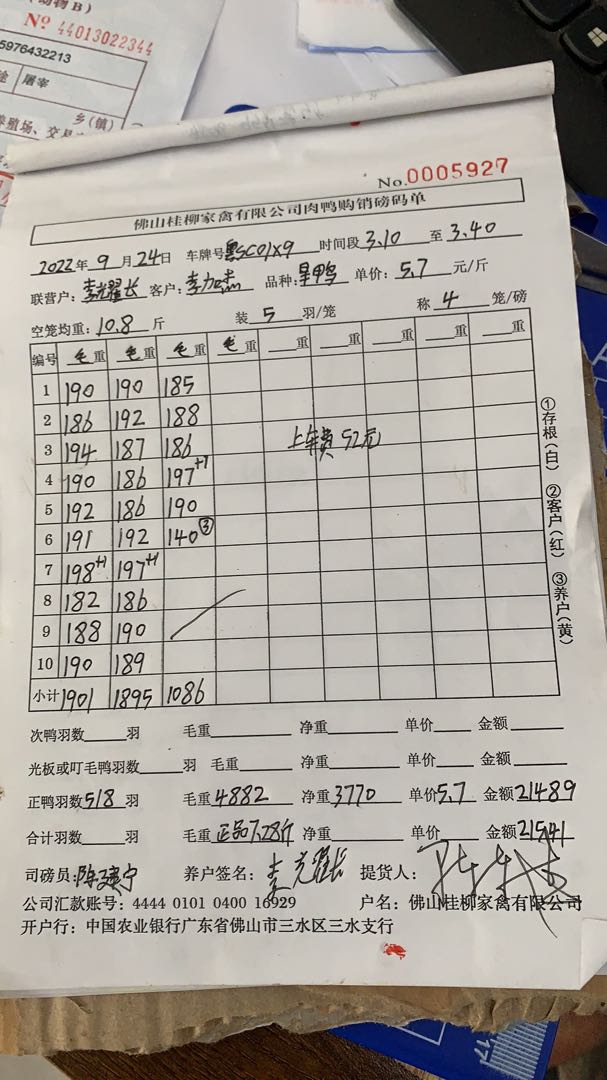 动物B）
№ 44013022344
5976432213
途 屠宰
乡(镇)
养殖场、交易
No.0005927
佛山桂柳家禽有限公司肉鸭购销磅码单
2022年9月24日 车牌号粤SC01X9 时间段3.10 至 3.40
联营户：李光耀长 客户：李加 品种：旱鸭 单价：5.7 元/斤
空笼均重：10.8 斤 装 5 羽/笼 称 4 笼/磅
编号 毛重 毛重 毛重 毛重 重 重 重 重 重
1 190 190 185
2 186 192 188
3 194 187 186 上车费 52元
4 190 186 197+1
5 192 186 190
6 191 192 140③
7 198+1 197+1
8 182 186
9 188 190
10 190 189
小计 1901 1895 1086
①存根（白） ②客户（红） ③养户（黄）
次鸭羽数 羽 毛重 净重 单价 金额
光板或叮毛鸭羽数 羽 毛重 净重 单价 金额
正鸭羽数518羽 毛重4882 净重3770 单价5.7 金额21489
合计羽数 羽 毛重正品7.28斤 净重 单价 金额21541
司磅员：陈建宁 养户签名：李光耀长 提货人：
公司汇款账号：4444 0101 0400 16929 户名：佛山桂柳家禽有限公司
开户行：中国农业银行广东省佛山市三水区三水支行
17